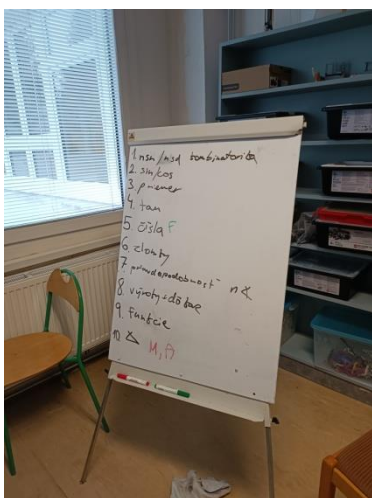 1. nsn/nsd kombinatorika
2. sin/cos
3. priemer
4. tan
5 čísla F
6. zlomky
7. pravdepodobnosť n∢
8. výroky+dôkaz
9. funkcie
10. △
M,